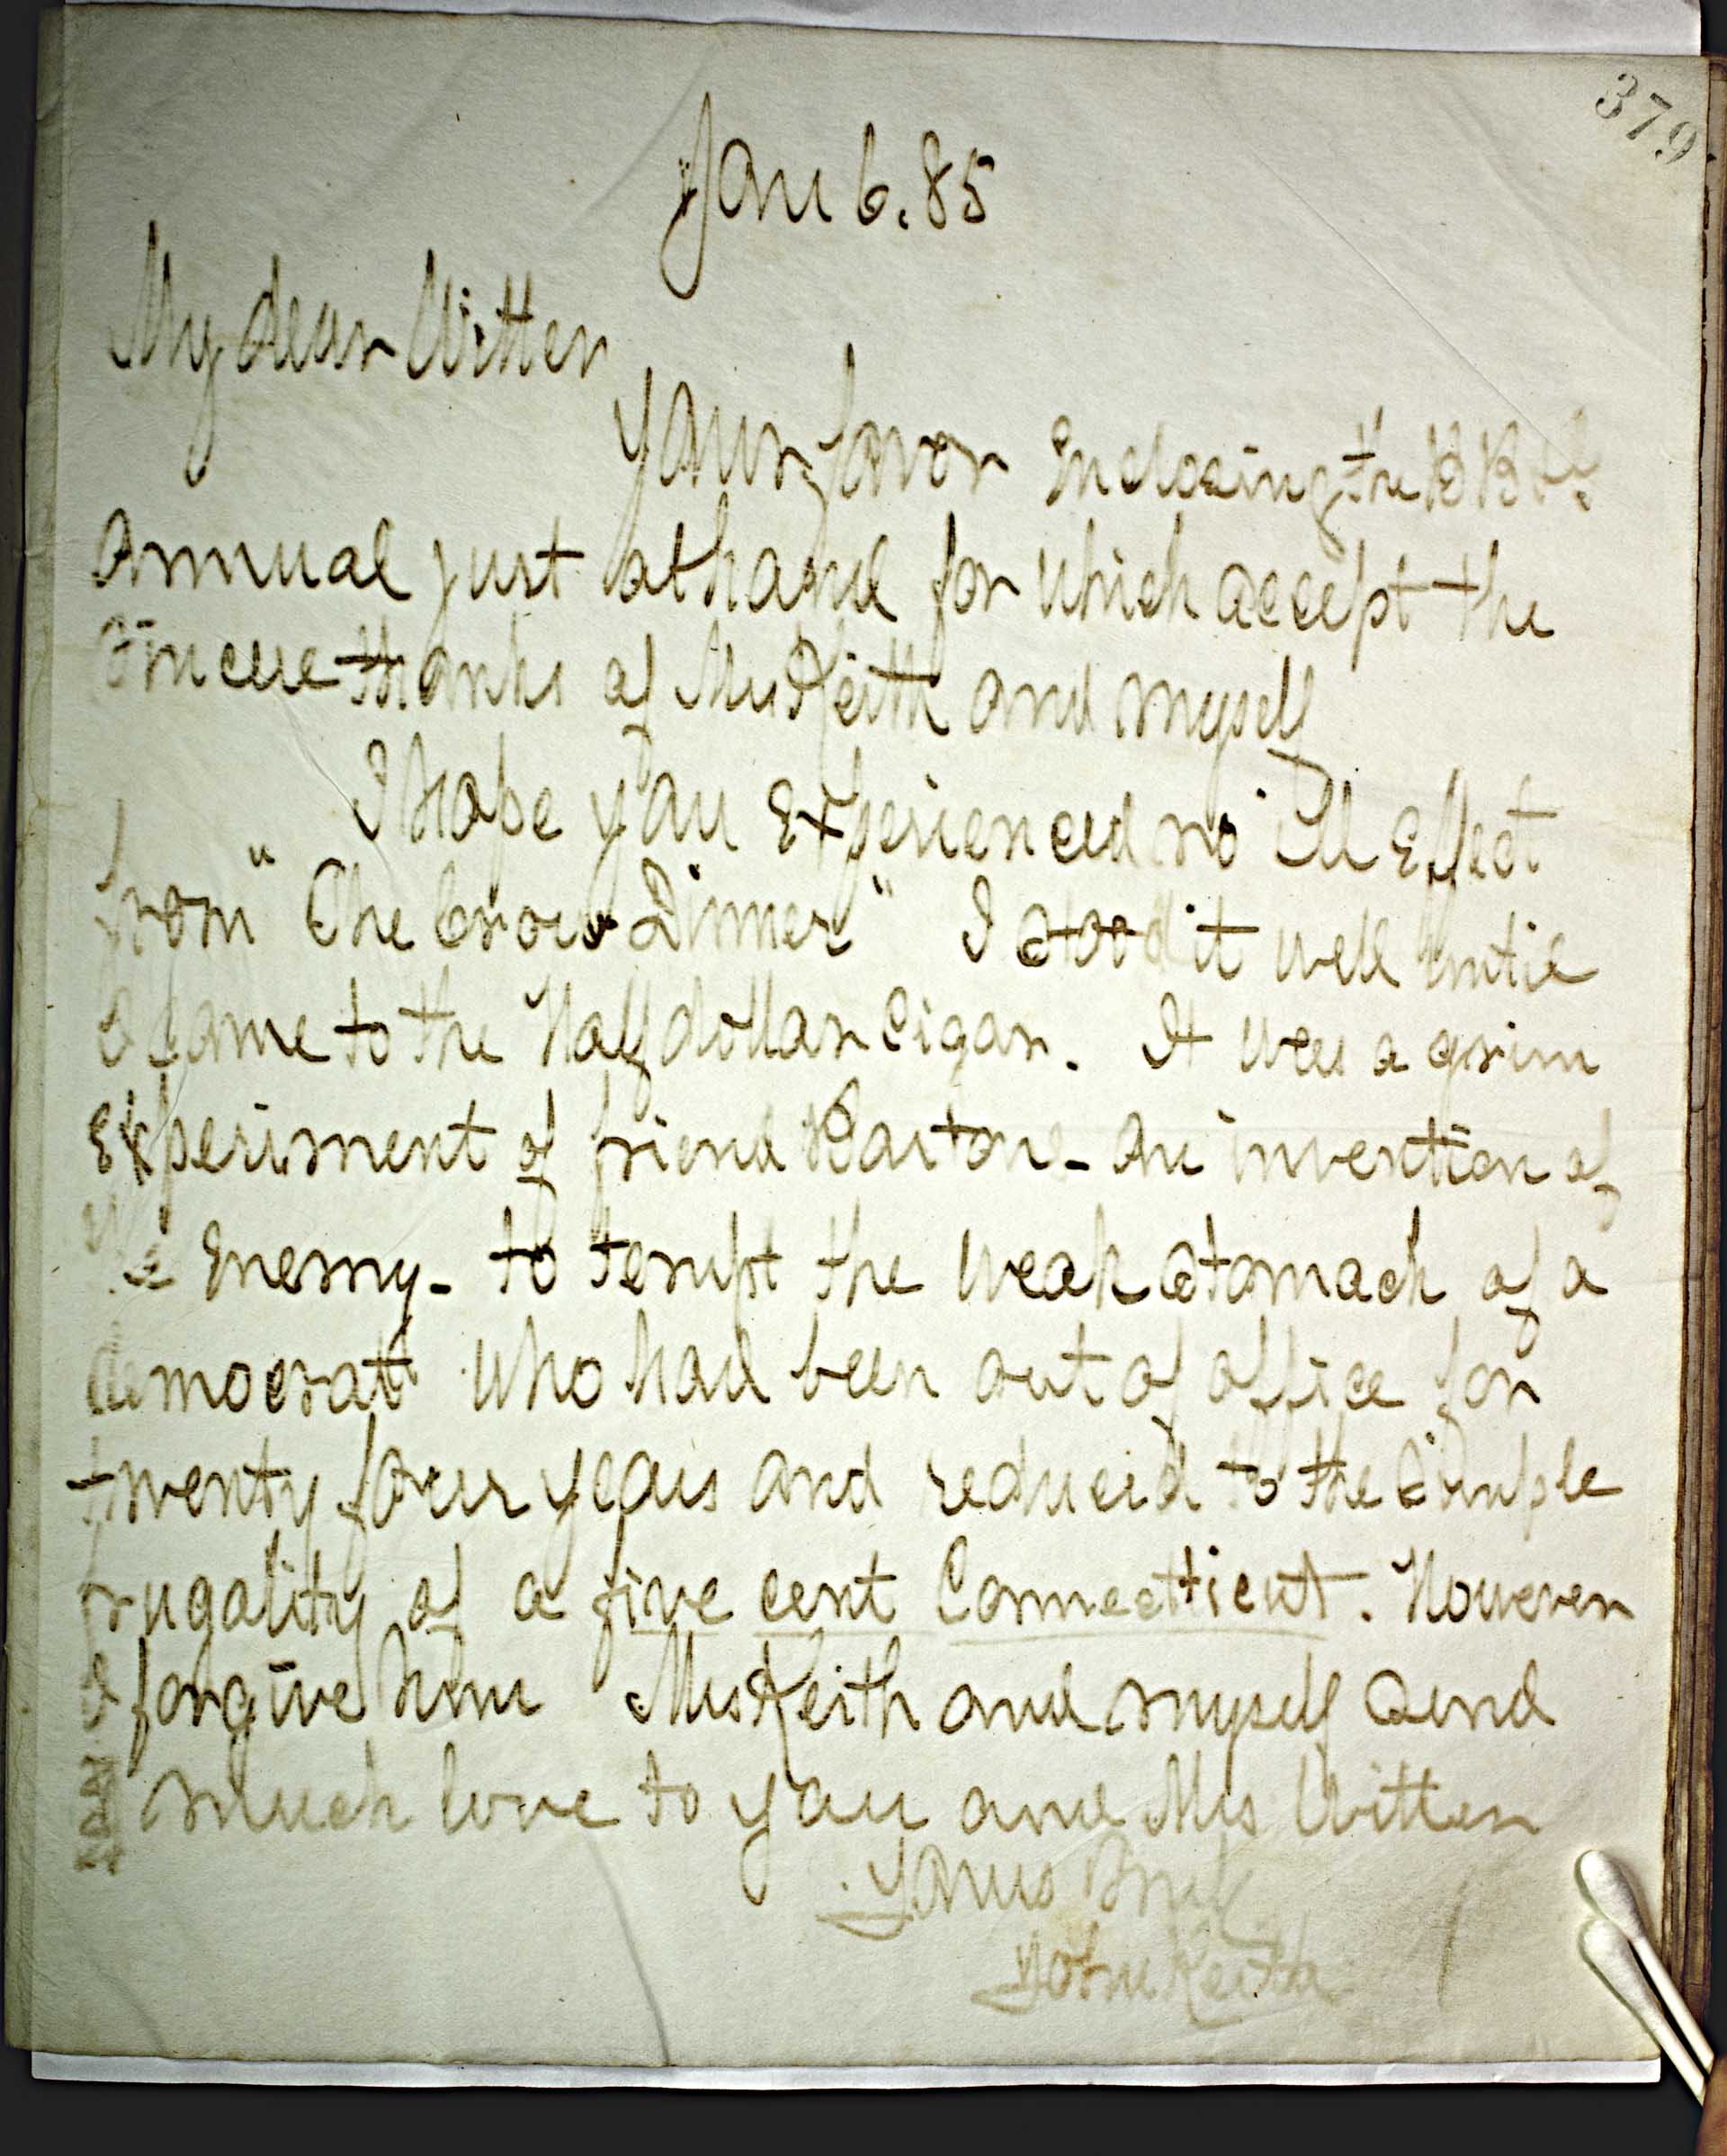 379
Jan 6. 85
My dear Witter
Your favor Enclosing the B B
Annual just at hand for which accept the
Sincere thanks of Mrs Keith and myself
I hope you Experienced no ill Effect
from "The Crow Dinner" I stood it well until
I came to the Half dollar Cigar. It was a grim
Experiment of friend Barton - An invention of
the Enemy - to tempt the weak stomach of a
democrat who had been out of office for
twenty four years and reduced to the simple
frugality of a five cent Connecticut. However
I forgive him Mrs Keith and myself Send
much love to you and Mrs Witter
Yours Truly
John Keith